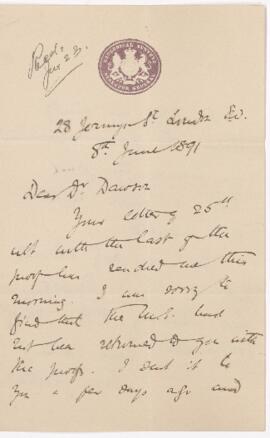 Recd.
June 23.
GEOLOGICAL SURVEY
DIRECTOR GENERAL
28 Jermyn St. London S.W.
8th June 1891
Dear Dr Dawson
Your letter of 25th
ult with the last of the
proof has reached me this
morning. I am sorry to
find that the M.S. had
not been returned to you with
the proofs. I sent it to
you a few days ago and